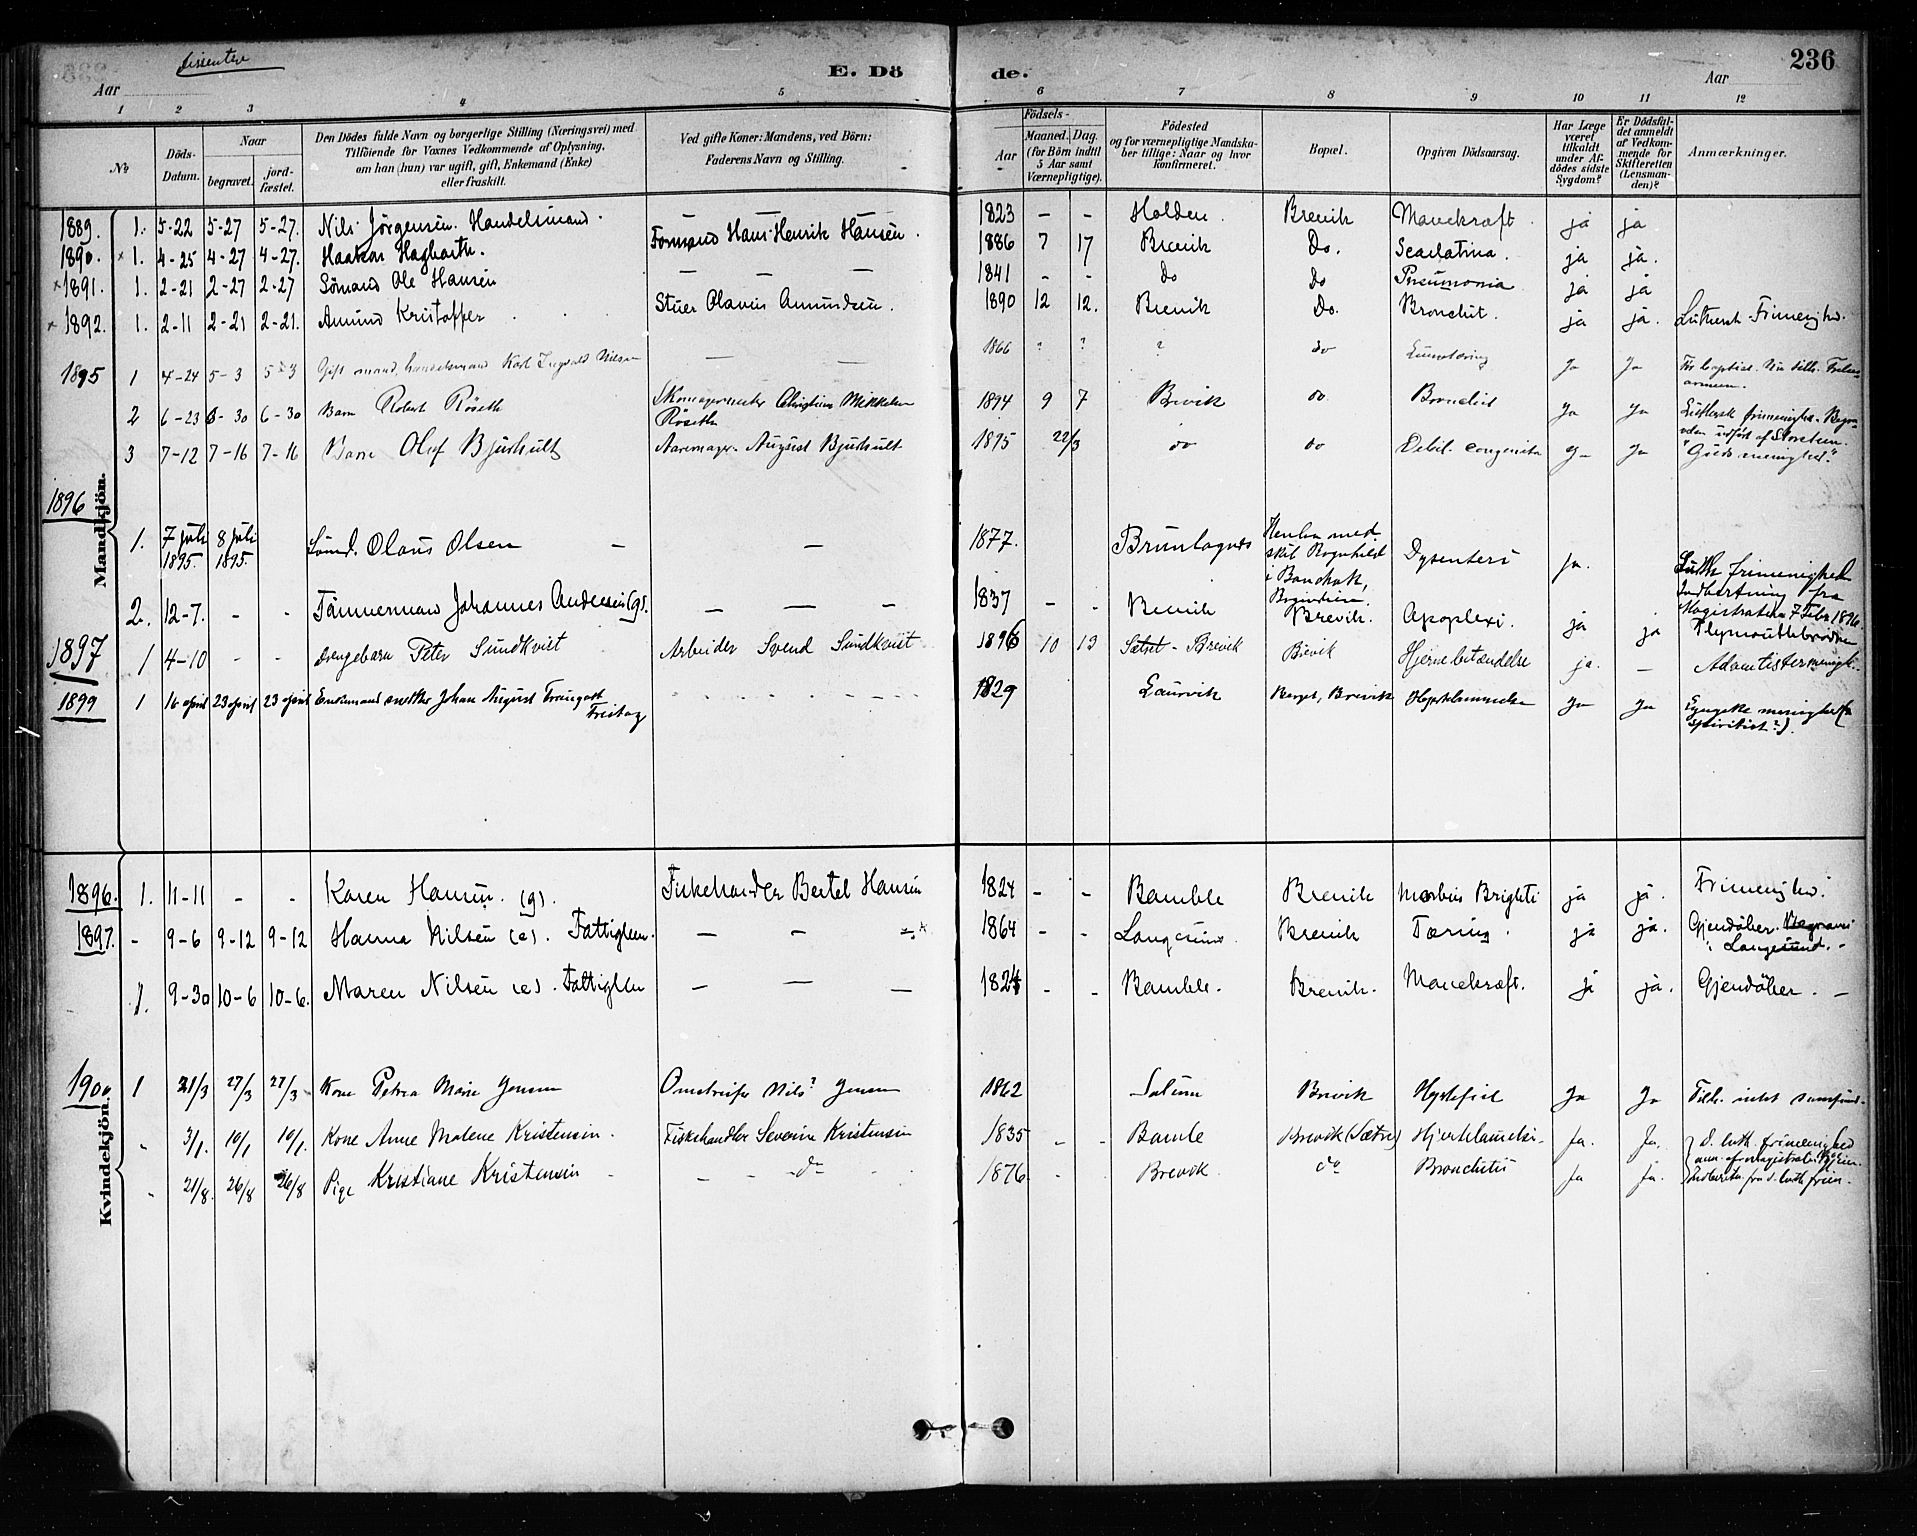 dissenter
E. Dö de.
236
Aar Aar
1 2 3 4 5 6 7 8 9 10 11 12
No
Döds-Datum.
Naar
begravet.
jord-fæstet.
Den Dödes fulde Navn og borgerlige Stilling (Næringsvei) med
Tilföiende for Voxnes Vedkommende af Oplysning,
om han (hun) var ugift, gift, Enkemand (Enke)
eller fraskilt.
Ved gifte Koner: Mandens, ved Börn:
Faderens Navn og Stilling.
Födsels-
Aar
Maaned. Dag.
(for Börn indtil
5 Aar samt
Værnepligtige).
Födested
og for værnepligtige Mandska-
ber tillige: Naar og hvor
konfirmeret.
Bopæl.
Opgiven Dödsaarsag.
Har Læge
været
tilkaldt
under Af-
dödes sidste
Sygdom?
Er Dödsfal-
det anmeldt
af Vedkom-
mende for
Skifteretten
(Lensman-
den)?
Anmærkninger.
Mandkjön.
1889. 1. 5-22 5-27 5-27. Nils Jörgensen. Handelsmand. — — — 1823 - - Holden. Brevik Marekraft. ja ja
1890. × 1. 4-25 4-27 4-27. Haakon Hagbarth. Formand Hans Henrik Hansen. 1886 7 17 Brevik Do. Scarlatina. ja ja.
× 1891. 1. 2-21 2-27 2-27 Sömand Ole Hansen — — — 1841 - - do do Pneumonia ja ja
× 1892. 1. 2-11 2-21 2-21. Amund Kristoffer Stuer Olavus Amundsen. 1890 12 12. Brevik Do. Bronchit. ja ja. Luthersk Frimenighed.
1895 1 4-24 5-3 5-3 Gift mand, handelsmand Karl Ingvald Nilsen — — 1866 ? ? ? do Ja Ja
2 6-23 6-30 6-30 Barn Robert Röseth Skomagermester Christian Mikkelsen
Röseth 1894 9 7 Brevik do Bronchit Ja Ja Luthersk frimenighed.
3 7-12 7-16 7-16 Barn Olaf Bjurhult Aaremager August Bjurhult 1895 22/3 do do Debil. congenita Ja Ja "Guds menighed".
1896
1. 7 juli
1895. 8 juli
1895. Sömd. Olaus Olsen — — 1877. Brunlagnes
med
skib Ragnhild
i Bangkok, Dysenteri ja. Luth. frimenighed
Indberetning fra
Magistraten 7 Febr 1896.
2. 12-7. - - Tömmermand Johannes Andersen (g). — — - 1837 - - Brevik Brevik. Apoplexi. ja ja Plymouthbroder
1897 1 4-10 - - Drengebarn Peter Sundkvist Arbeider Svend Sundkvist 1896 10 13 Sætret - Brevik Brevik Hjernebetændelse ja. — Adventistermenigh.
1899 1 16 april 23 april 23 april Enkemand Johan August Traugott
Freitag 1829 Laurvik Berget, Brevik Hjertelammelse Ja Ja
spiritist?)
Kvindekjön.
1896. 1. 11-11 - - Karen Hansen. (g). Fiskehandler Bertel Hansen 1824 - - Bamble Brevik Morbus Brighti ja ja. Frimenighed.
1897. - 9-6 9-12 9-12 Hanna Nilsen (e). Fattiglem. — — 1864 - - Langesund. Brevik Tæring. ja ja. Gjendöber. Begravet
i Langesund.
1. 9-30 10-6 10-6. Maren Nilsen (e). Fattiglem — — — 1824 - - Bamble. Brevik. Marekraft. ja ja. Gjendöber. —
1900 1 21/3 27/3 27/3 Kone Petra Marie Jensen Nils? Jensen 1862 Solum Brevik Hjertefeil Ja Ja Tilh. intet samfund.
" 3/1. 10/1 10/1 Kone Anne Malene Kristensen. Fiskehandler Severin Kristensen 1835 - - Bamle Brevik (Sætre) Hjertelammelse. Ja. Ja. d. luth. frimenighed
" 21/8. 26/8 26/8 Pige Kristiane Kristensen - - do - 1876 - - Brevik do Bronchitis Ja Ja. Indberetn. fra d. luth. frim.